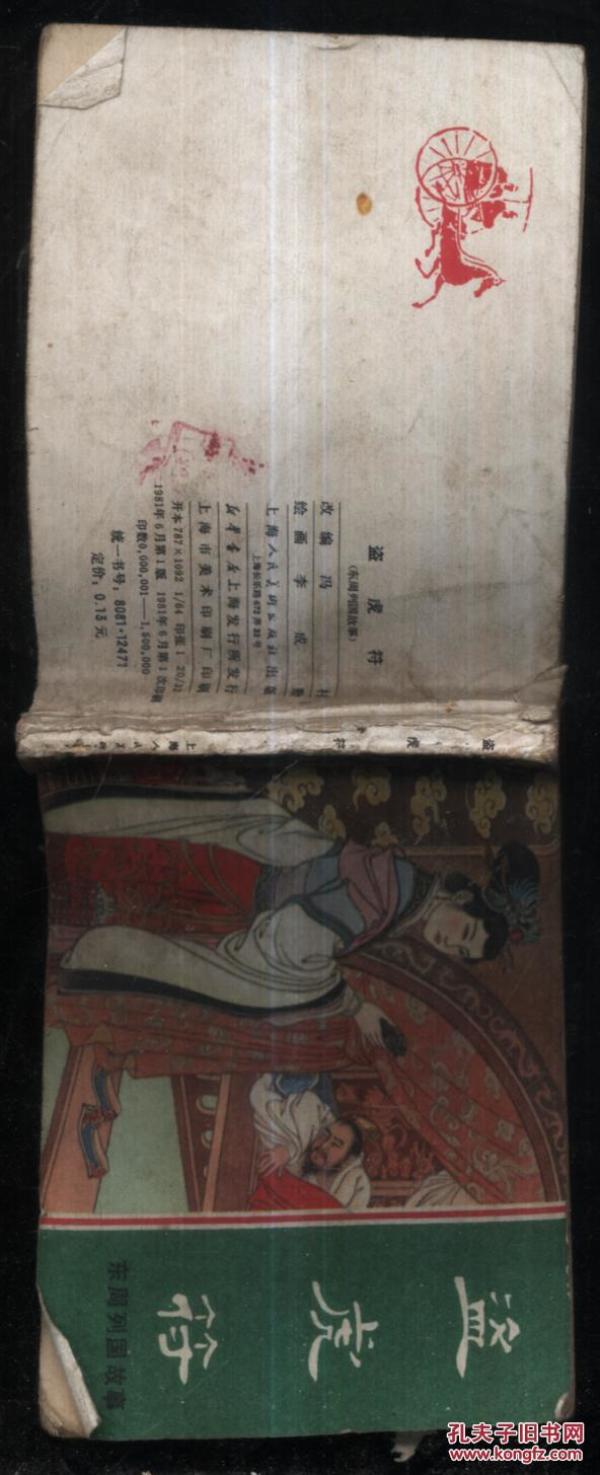 盗虎符
(东周列国故事)
改编 冯
绘画 李成
上海人民美术出版社出版
上海长乐路672弄33号
新华书店上海发行所发行
上海市美术印刷厂印刷
开本787×1092 1/64 印张1 20/32
1981年6月第1版 1981年6月第1次印刷
印数0,000,001—1,500,000
统一书号：8081·12471
定价：0.13元
盗虎符
上海人
盗虎符
东周列国故事
孔夫子旧书网
www.kongfz.com